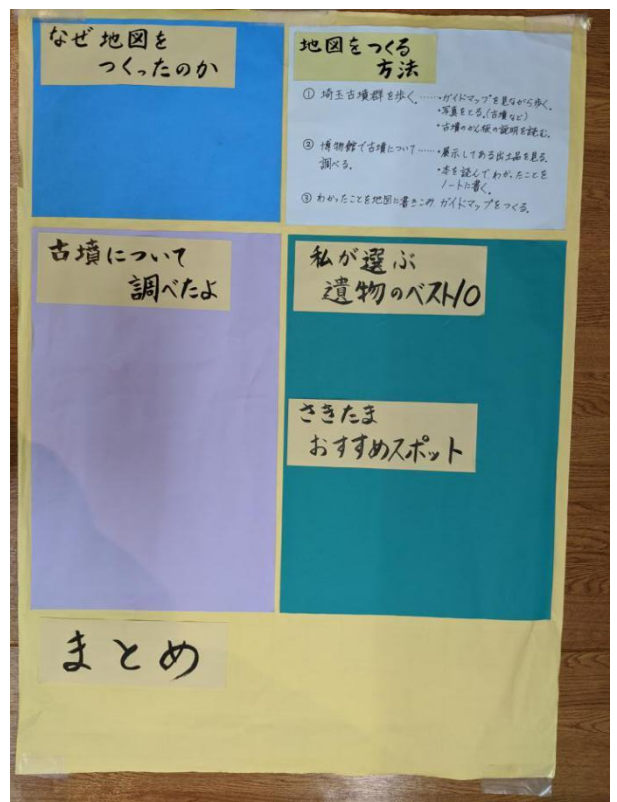 なぜ地図を
つくったのか
地図をつくる
方法
① 埼玉古墳群を歩く。……・ガイドマップを見ながら歩く。
・写真をとる。(古墳など)
・古墳のかん板の説明を読む。
② 博物館で古墳について……・展示してある出土品を見る。
調べる。
・本を読んでわかったことを
ノートに書く。
③ わかったことを地図に書きこみ ガイドマップをつくる。
古墳について
調べたよ
私が選ぶ
遺物のベスト10
さきたま
おすすめスポット
まとめ